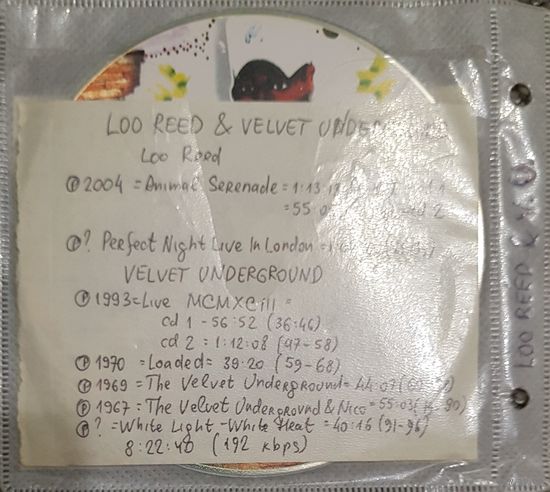 LOO REED & VELVET
Loo Reed
℗ 2004 = Animal Serenade = 1:13:
= 55:0 cd 2
℗ ? Perfect Night Live In London =
VELVET UNDERGROUND
℗ 1993 = Live MCMXCiii =
cd 1 - 56:52 (36-46)
cd 2 = 1:12:08 (47-58)
℗ 1970 = Loaded = 39:20 (59-68)
℗ 1969 = The Velvet Underground = 44:07
℗ 1967 = The Velvet Underground & Nico = 55:03
℗ ? = White Light - White Heat = 40:16 (91-96)
8:22:40 (192 kbps)
LOO REED & V. U.